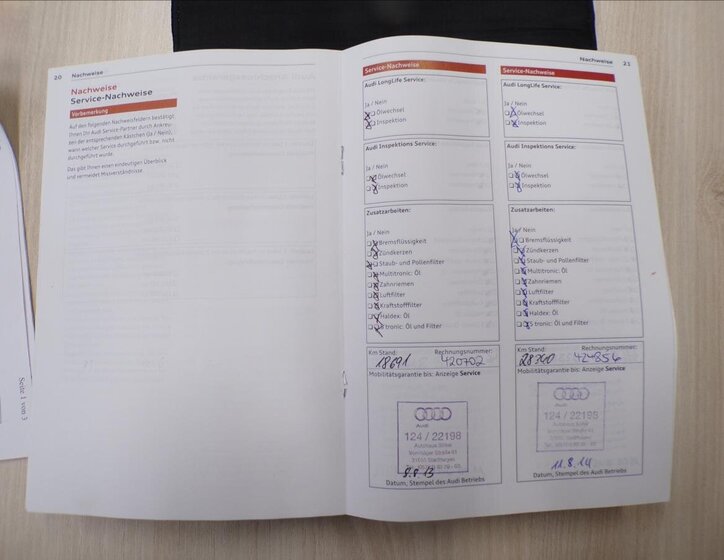 20 Nachweise
Nachweise
Service-Nachweise
Vorbemerkung
Auf den folgenden Nachweisfeldern bestätigt
Ihnen Ihr Audi Service-Partner durch Ankreu-
zen der entsprechenden Kästchen (Ja / Nein),
wann welcher Service durchgeführt bzw. nicht
durchgeführt wurde.
Das gibt Ihnen einen eindeutigen Überblick
und vermeidet Missverständnisse.
Seite 1 von 3
Service-Nachweise
Audi LongLife Service:
Ja / Nein
Ölwechsel
Inspektion
Audi Inspektions Service:
Ja / Nein
Ölwechsel
Inspektion
Zusatzarbeiten:
Ja / Nein
Bremsflüssigkeit
Zündkerzen
Staub- und Pollenfilter
Multitronic: Öl
Zahnriemen
Luftfilter
Kraftstofffilter
Haldex: Öl
S tronic: Öl und Filter
Km Stand: Rechnungsnummer:
18691 420702
Mobilitätsgarantie bis: Anzeige Service
Audi
124 / 22198
8.8.13
Datum, Stempel des Audi Betriebs
Nachweise 21
Service-Nachweise
Audi LongLife Service:
Ja / Nein
Ölwechsel
Inspektion
Audi Inspektions Service:
Ja / Nein
Ölwechsel
Inspektion
Zusatzarbeiten:
Ja / Nein
Bremsflüssigkeit
Zündkerzen
Staub- und Pollenfilter
Multitronic: Öl
Zahnriemen
Luftfilter
Kraftstofffilter
Haldex: Öl
S tronic: Öl und Filter
Km Stand: Rechnungsnummer:
424856
Mobilitätsgarantie bis: Anzeige Service
Audi
124 / 22195
11.8.14
Datum, Stempel des Audi Betriebs